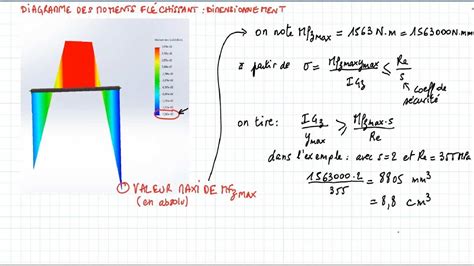 DIAGRAMME DES MOMENTS FLÉCHISSANT : DIMENSIONNEMENT
on note Mfzmax = 1563 N.m = 1563000 N.mm
à partir de σ = Mfzmax ymax / IGz ≤ Re / s
coeff de
sécurité
on tire : IGz / ymax ≥ Mfzmax . s / Re
dans l'exemple : avec s=2 et Re=355MPa
1563000.2 / 355 = 8805 mm³
= 8,8 cm³
① VALEUR MAXI DE Mfzmax
(en absolu)